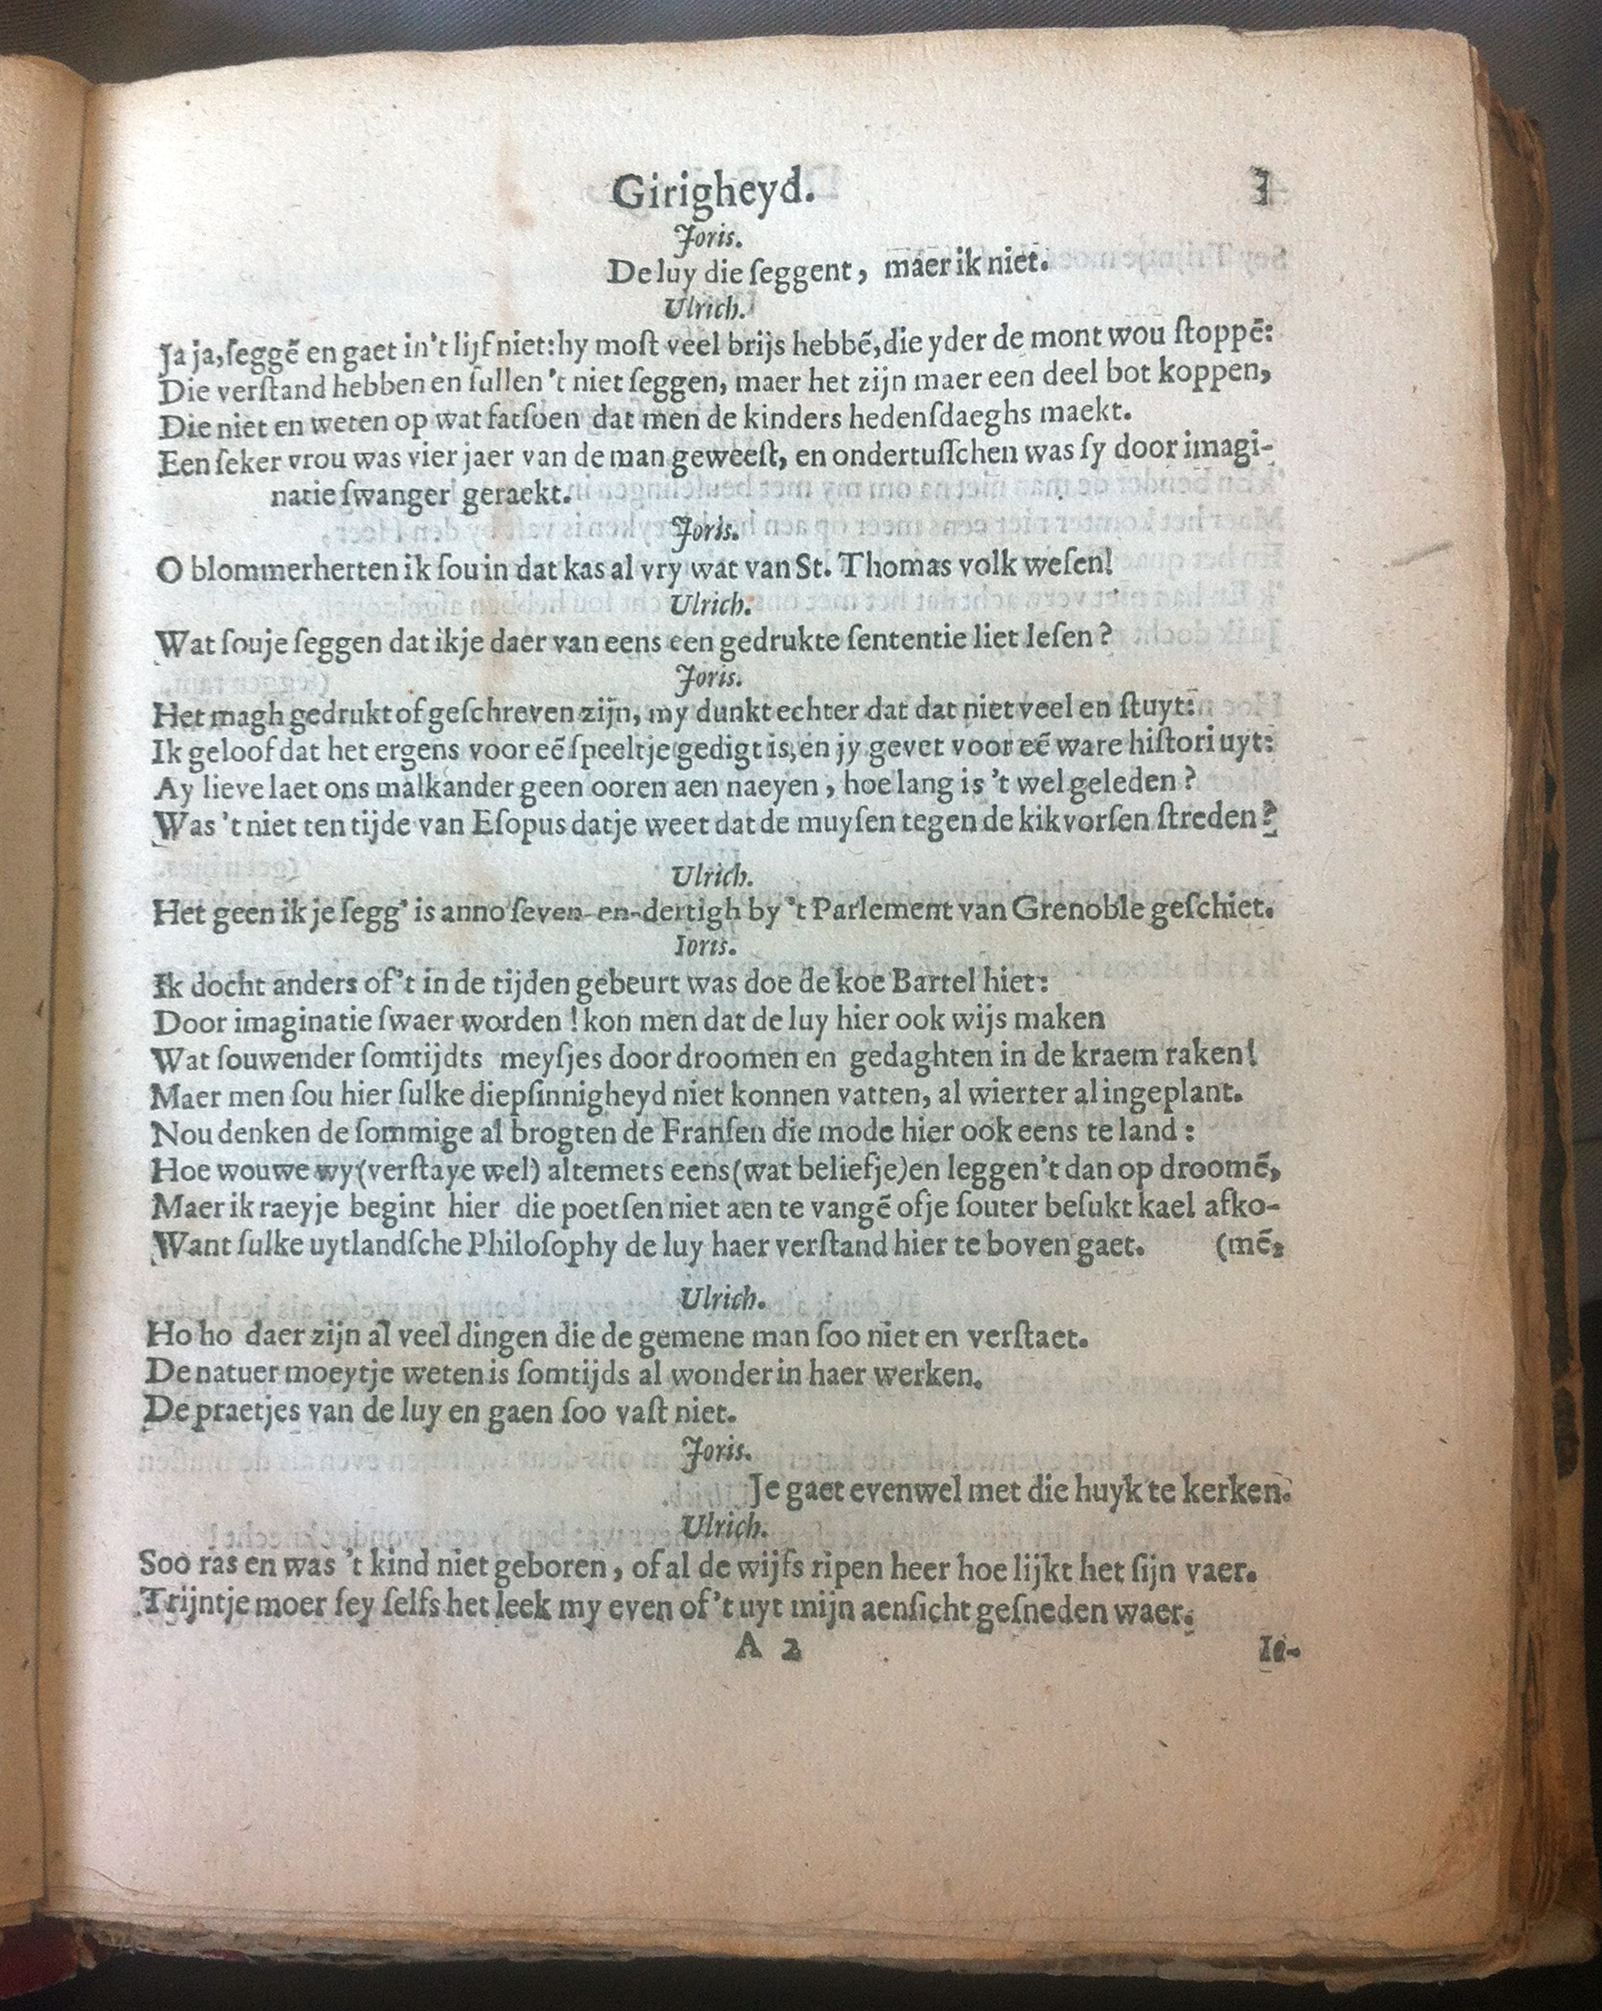 Girigheyd. 3
Joris.
De luy die ſeggent, maer ik niet.
Ulrich.
Ja ja, ſeggẽ en gaet in't lijf niet: hy moſt veel brijs hebbẽ, die yder de mont wou ſtoppẽ:
Die verſtand hebben en ſullen 't niet ſeggen, maer het zijn maer een deel bot koppen,
Die niet en weten op wat fatſoen dat men de kinders hedenſdaeghs maekt.
Een ſeker vrou was vier jaer van de man geweeſt, en ondertuſſchen was ſy door imagi-
natie ſwanger geraekt.
Joris.
O blommerherten ik ſou in dat kas al vry wat van St. Thomas volk weſen!
Ulrich.
Wat ſouje ſeggen dat ikje daer van eens een gedrukte ſententie liet leſen?
Joris.
Het magh gedrukt of geſchreven zijn, my dunkt echter dat dat niet veel en ſtuyt:
Ik geloof dat het ergens voor eẽ ſpeeltje gedigt is, en jy gevet voor eẽ ware hiſtori uyt:
Ay lieve laet ons malkander geen ooren aen naeyen, hoe lang is 't wel geleden?
Was 't niet ten tijde van Eſopus datje weet dat de muyſen tegen de kikvorſen ſtreden?
Ulrich.
Het geen ik je ſegg' is anno ſeven-en-dertigh by 't Parlement van Grenoble geſchiet.
Ioris.
Ik docht anders of't in de tijden gebeurt was doe de koe Bartel hiet:
Door imaginatie ſwaer worden! kon men dat de luy hier ook wijs maken
Wat ſouwender ſomtijdts meyſjes door droomen en gedaghten in de kraem raken!
Maer men ſou hier ſulke diepſinnigheyd niet konnen vatten, al wierter al ingeplant.
Nou denken de ſommige al brogten de Franſen die mode hier ook eens te land:
Hoe wouwe wy (verſtaye wel) altemets eens (wat beliefje) en leggen't dan op droomẽ,
Maer ik raeyje begint hier die poetſen niet aen te vangẽ ofje ſouter beſukt kael afko-
Want ſulke uytlandſche Philoſophy de luy haer verſtand hier te boven gaet. (mẽ,
Ulrich.
Ho ho daer zijn al veel dingen die de gemene man ſoo niet en verſtaet.
De natuer moeytje weten is ſomtijds al wonder in haer werken.
De praetjes van de luy en gaen ſoo vaſt niet.
Joris.
Je gaet evenwel met die huyk te kerken.
Ulrich.
Soo ras en was 't kind niet geboren, of al de wijfs ripen heer hoe lijkt het ſijn vaer.
Trijntje moer ſey ſelfs het leek my even of 't uyt mijn aenſicht geſneden waer.
A 2 Ie-